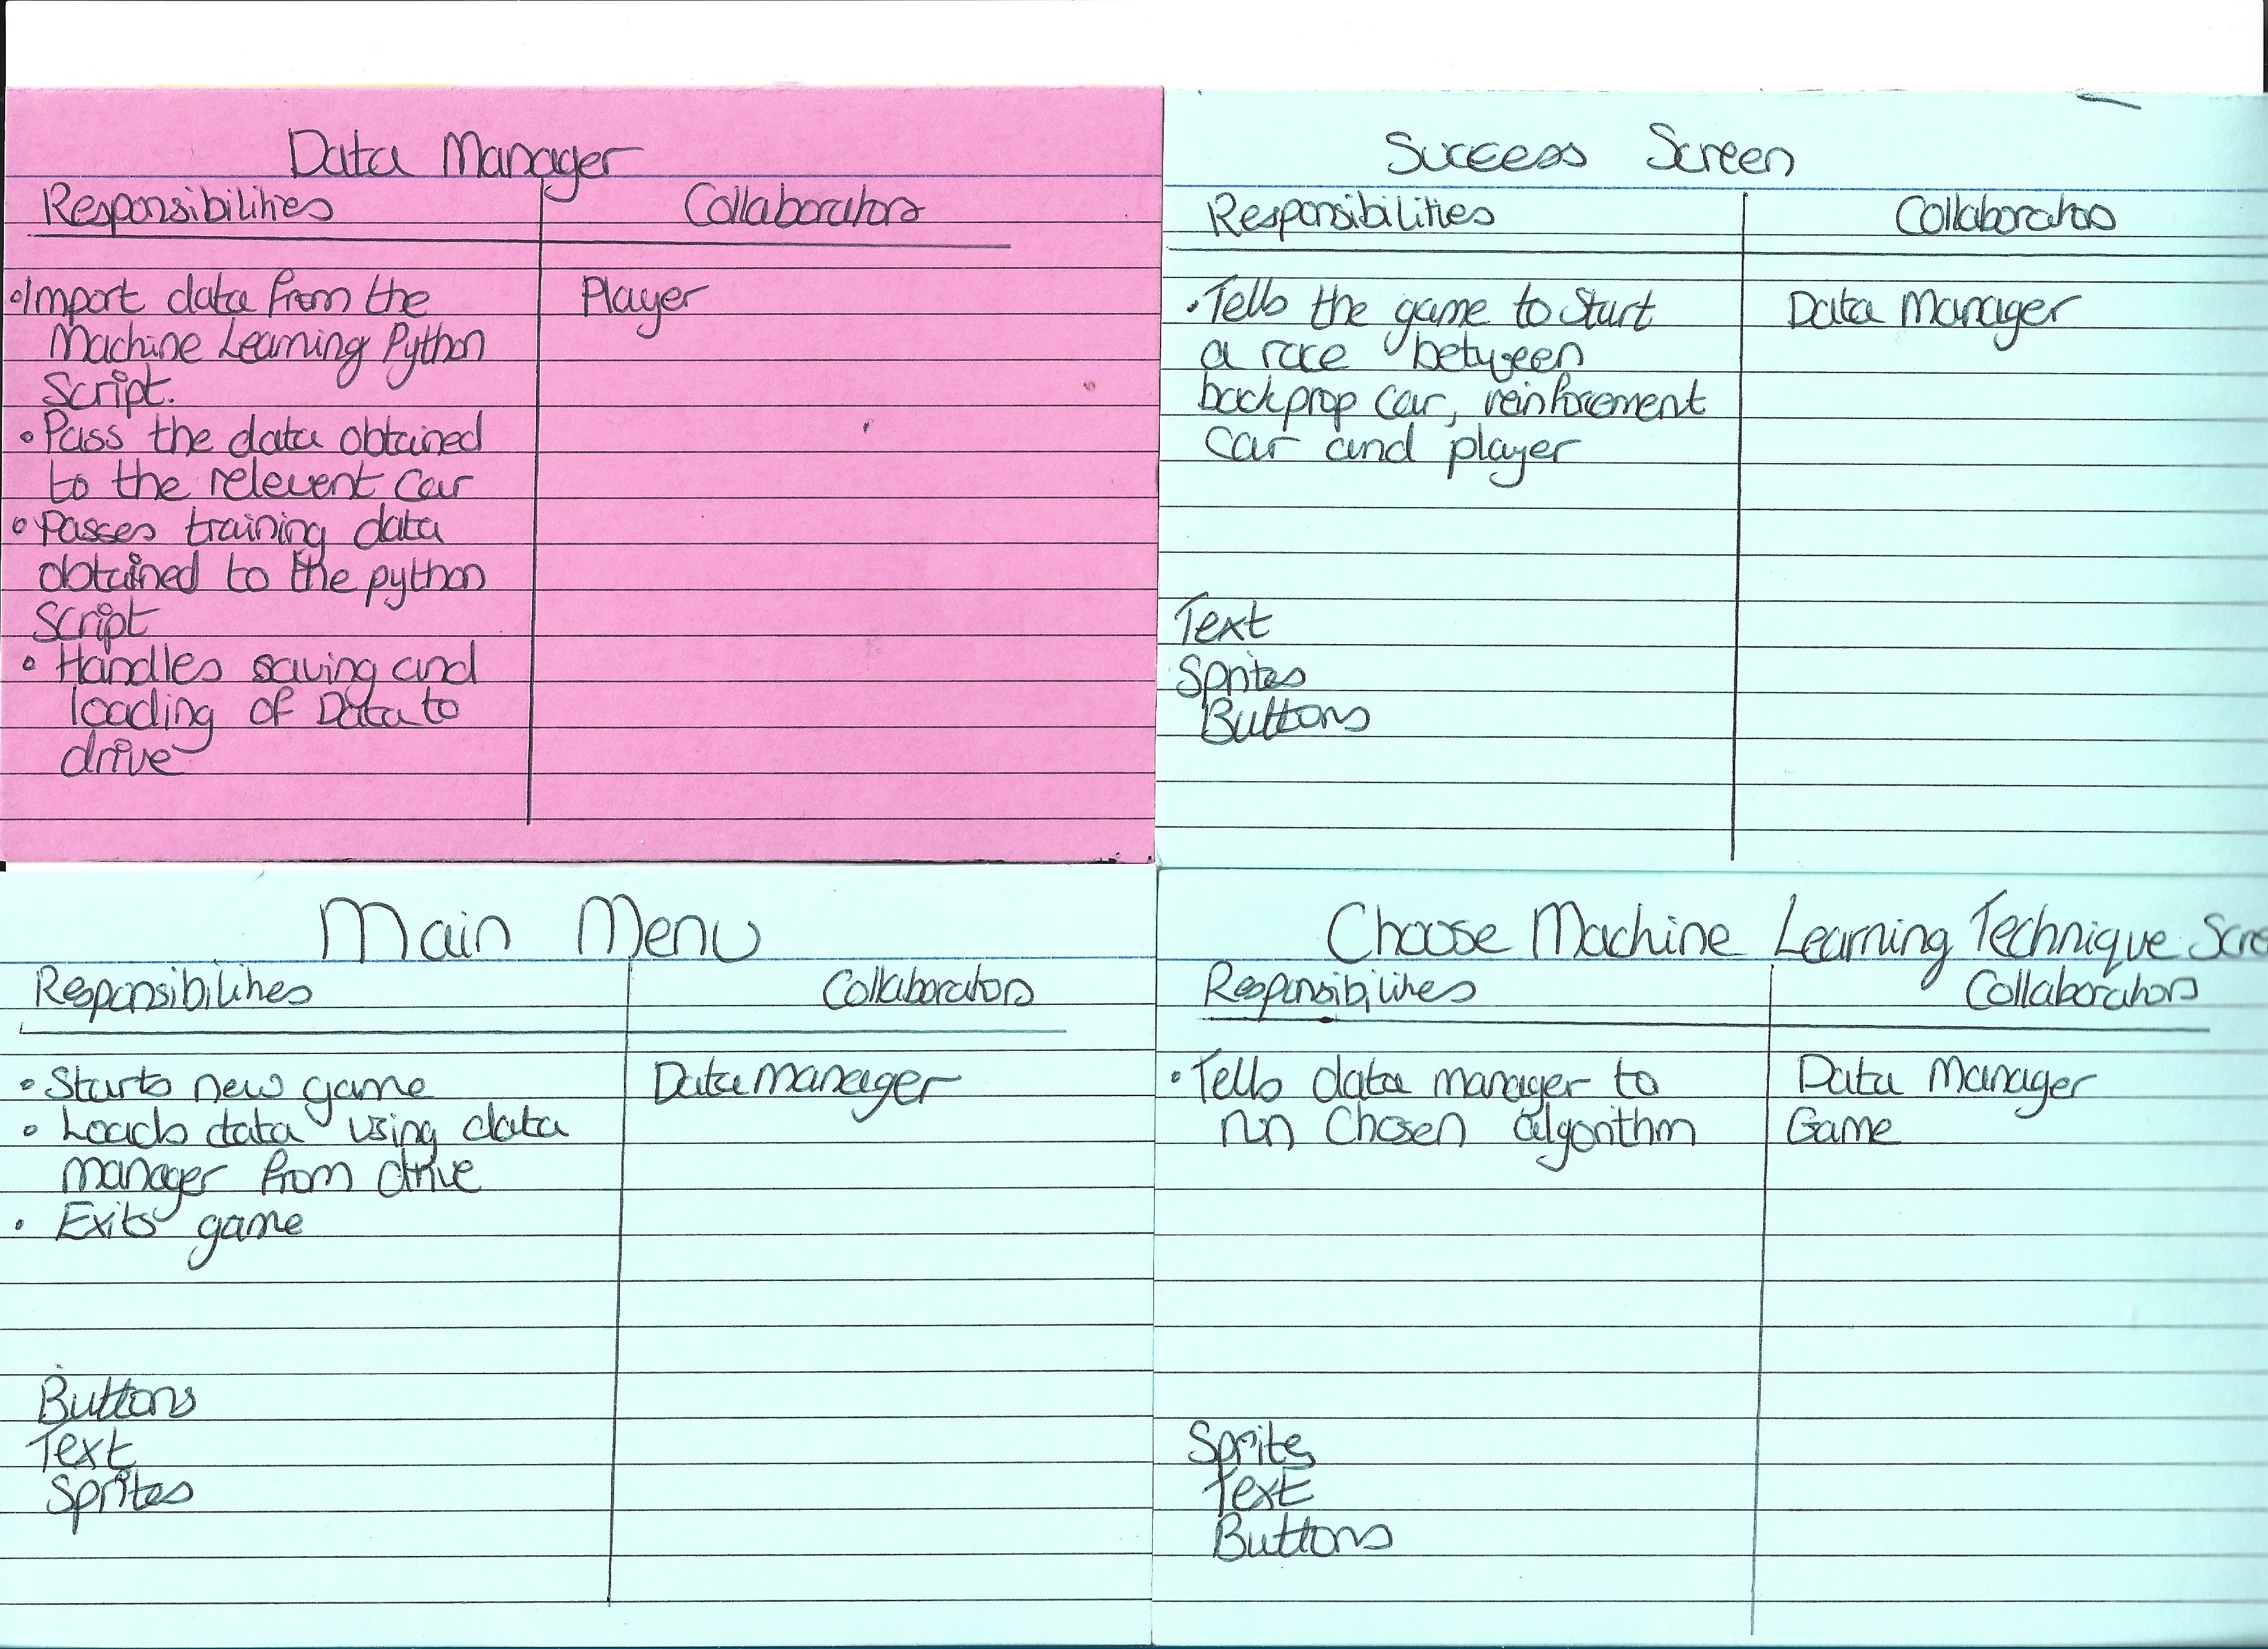 Data Manager
Responsibilities
Collaborators
•Import data from the
Machine Learning Python
Script.
•Pass the data obtained
to the relevent car
•Passes training data
obtained to the python
Script
•Handles saving and
loading of Data to
drive
Player
Success Screen
Responsibilities
Collaborators
•Tells the game to start
a race between
backprop car, reinforcement
car and player
Text
Sprites
Buttons
Data Manager
Main Menu
Responsibilities
Collaborators
•Starts new game
•Loads data using data
manager from drive
•Exits game
Buttons
Text
Sprites
Data manager
Choose Machine Learning Technique Scre
Responsibilities
Collaborators
•Tells data manager to
run chosen algorithm
Sprites
Text
Buttons
Data Manager
Game